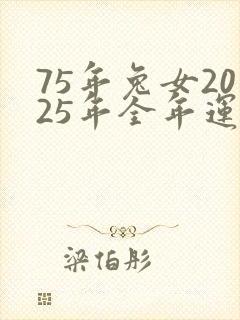 75年兔女20
25年全年運
梁伯彤